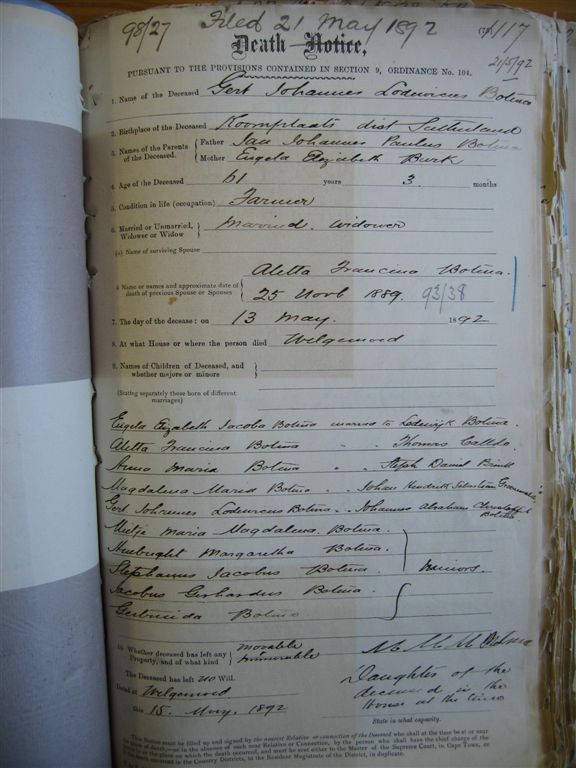 98/27 Filed 21 May 1892 117
Death Notice,
21/5/92
PURSUANT TO THE PROVISIONS CONTAINED IN SECTION 9, ORDINANCE No. 104.
1. Name of the Deceased Gert Johannes Lodewicus Botma
2. Birthplace of the Deceased Koornplaats dist Sutherland
3. Names of the Parents of the Deceased. Father Jan Johannes Paulus Botma
Mother Engela Elizabeth Burk
4. Age of the Deceased 61 years 3 months
5. Condition in life (occupation) Farmer
6. Married or Unmarried, Widower or Widow Married. Widower
(a) Name of surviving Spouse
Aletta Francina Botma.
Name or names and approximate date of death of previous Spouse or Spouses
25 Novb 1889. 93/38
7. The day of the decease: on 13 May. 1892
8. At what House or where the person died Welgemoed
9. Names of Children of Deceased, and whether majors or minors
(Stating separately those born of different marriages)
Engela Elizabeth Jacoba Botma married to Lodewijk Botma.
Aletta Francina Botma " " Thomas
Anna Maria Botma " " Steph Daniel
Magdalena Maria Botma " " Johan Hendrik Sebastian
Gert Johannes Lodewicus Botma " Johannes Abraham Christoffel Botma
Maria Magdalena Botma.
Margaretha Botma.
Stephanus Jacobus Botma. Minors.
Jacobus Gerhardus Botma.
Gertruida Botma
10. Whether deceased has left any Property, and of what kind movable immovable
M. M. M. Botma
The Deceased has left no Will.
Daughter of the deceased in the House at the time
Dated at Welgemoed
this 15. May. 1892
State in what capacity.
This Notice must be filled up and signed by the nearest Relative or connection of the Deceased who shall at the time be at or near
the place of death,—or in the absence of such near Relative or Connection, by the person who shall have the chief charge of the
House in or the place on which the death occurred, and must be sent either to the Master of the Supreme Court, in Cape Town, or
if the death occurred in the Country Districts, to the Resident Magistrate of the District, in duplicate.